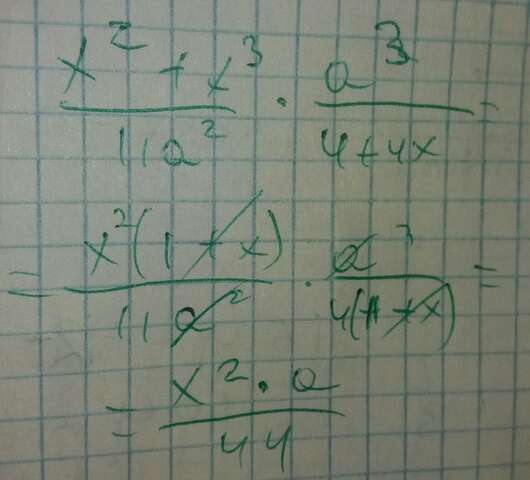 (x² + x³)/(11a²) · a³/(4+4x) =
= x²(1+x)/(11a²) · a³/(4(1+x)) =
= (x² · a)/44